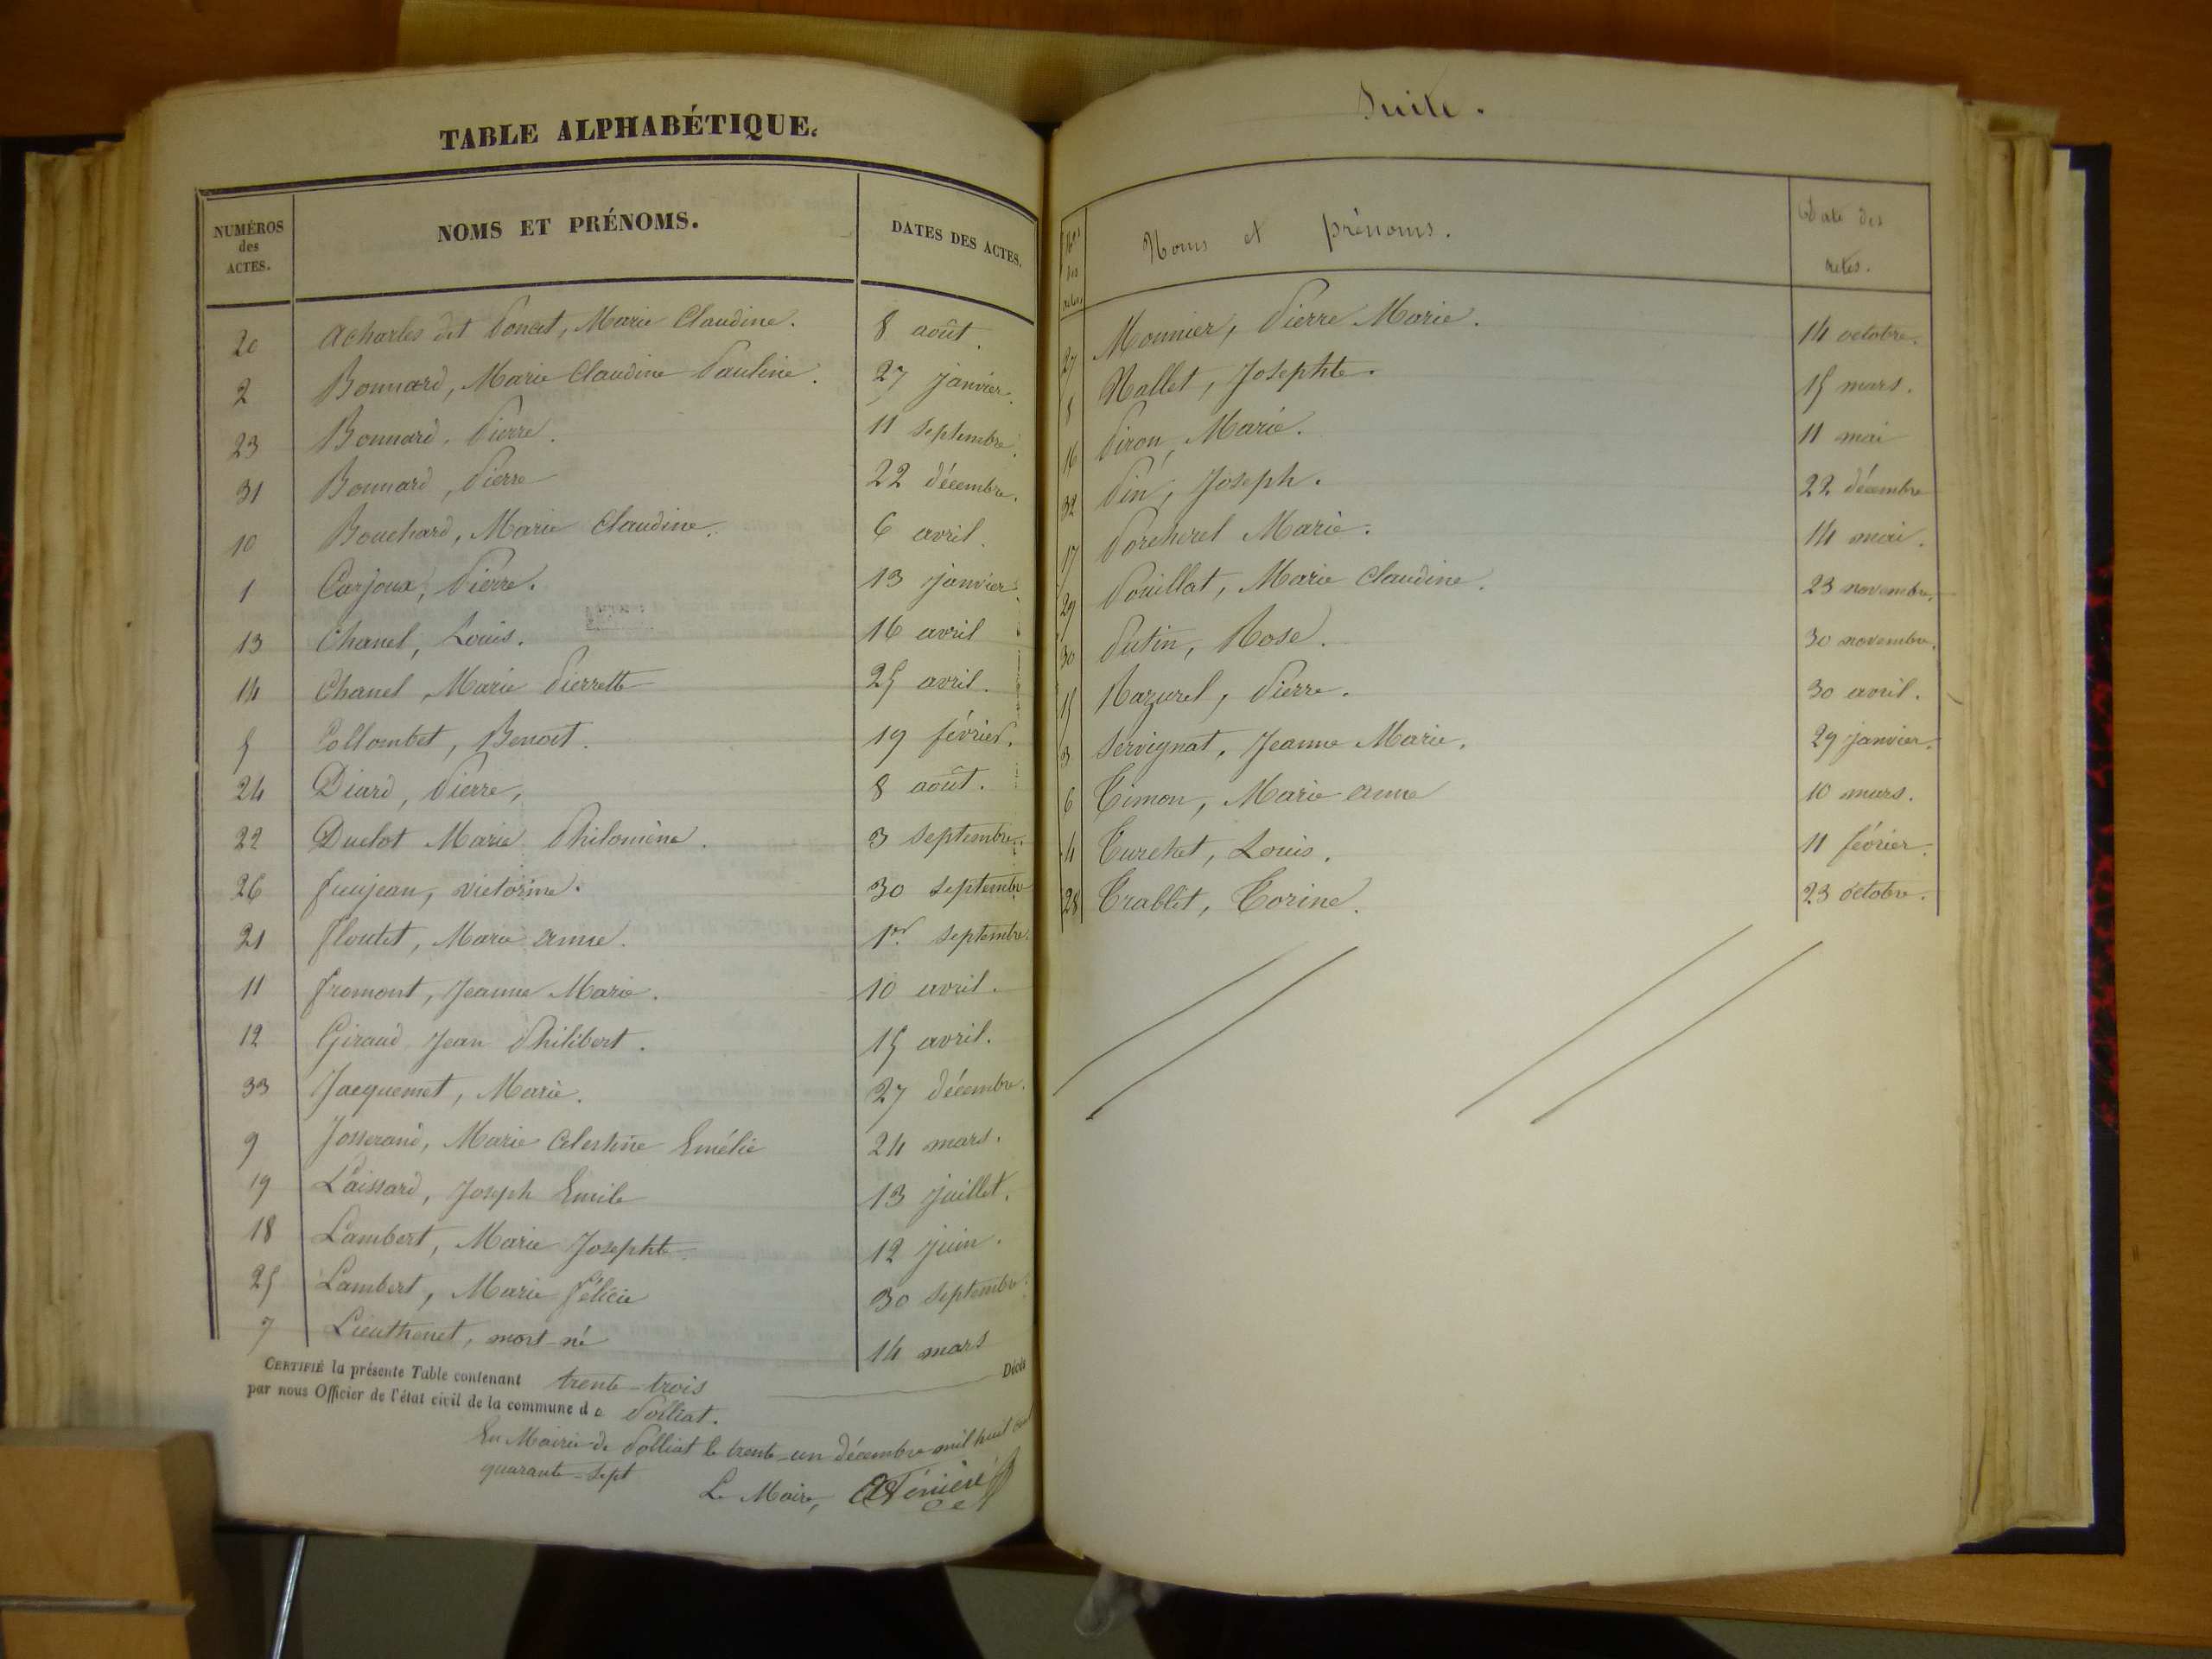 TABLE ALPHABÉTIQUE.
NUMÉROS
des
ACTES.
NOMS ET PRÉNOMS.
DATES DES ACTES.
20 Acharles dit Donat, Marie Claudine. 8 août.
2 Bonnard, Marie Claudine Pauline. 27 janvier.
23 Bonnard, Pierre. 11 septembre.
31 Bonnard, Pierre 22 décembre.
10 Bouchard, Marie Claudine. 6 avril.
1 Carjoux, Pierre. 13 janvier.
13 Chanel, Louis. 16 avril
14 Chanel, Marie Pierrette 25 avril.
5 Collombet, Benoit. 19 février.
24 Diard, Pierre, 8 août.
22 Duclot Marie Philomène. 3 septembre.
26 victorine. 30 septembre
21 Floutet, Marie anne. 1er septembre.
11 Fromont, Jeanne Marie. 10 avril.
12 Giraud Jean Philibert. 15 avril.
33 Jacquemet, Marie. 27 décembre.
9 Josserand, Marie Célestine Emélie 24 mars.
19 Laissard, Joseph Emile 13 juillet.
18 Lambert, Marie Josephte 12 juin.
25 Lambert, Marie Félicie 30 septembre.
7 Lieuthenet, mort-né 14 mars
CERTIFIÉ la présente Table contenant trente-trois Décès
par nous Officier de l'état civil de la commune de Polliat.
En Mairie de Polliat le trente-un décembre mil huit cent
quarante-sept
Le Maire,
Suite.
Nos
des
actes
Noms et prénoms.
Date des
actes.
27 Monnier, Pierre Marie. 14 octobre.
8 Nallet, Josephte. 15 mars.
16 Piron, Marie. 11 mai
32 Pin, Joseph. 22 décembre
17 Porcherel Marie. 14 mai.
29 Pouillat, Marie Claudine. 23 novembre.
30 Putin, Rose. 30 novembre.
15 Razurel, Pierre. 30 avril.
3 Servignat, Jeanne Marie. 29 janvier.
6 Timon, Marie anne 10 mars.
4 Turchet, Louis. 11 février.
28 Trablet, Torine. 23 octobre.